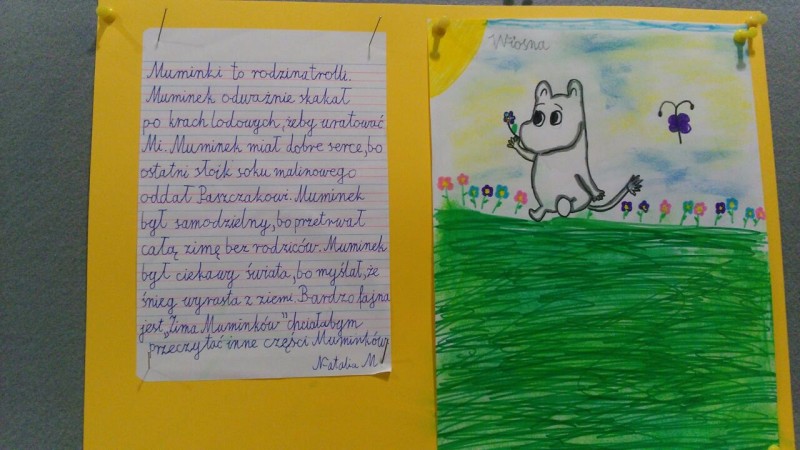 Muminki to rodzina trolli.
Muminek odważnie skakał
po krach lodowych, żeby uratować
Mi. Muminek miał dobre serce, bo
ostatni słoik soku malinowego
oddał Paszczakowi. Muminek
był samodzielny, bo przetrwał
całą zimę bez rodziców. Muminek
był ciekawy świata, bo myślał, że
śnieg wyrasta z ziemi. Bardzo fajna
jest „Zima Muminków" chciałabym
przeczytać inne części Muminków
Natalia M
Wiosna